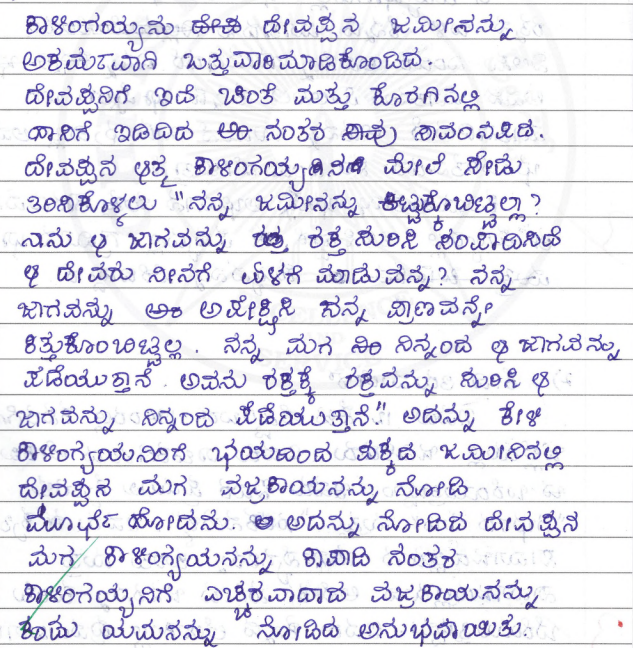 ಕಾಳಿಂಗಯ್ಯನು ದೇವಪ್ಪನ ಜಮೀನನ್ನು
ಅಕ್ರಮವಾಗಿ ಒತ್ತುವಾರಿಮಾಡಿಕೊಂಡಿದ.
ದೇವಪ್ಪನಿಗೆ ಇದೆ ಚಿಂತೆ ಮತ್ತು ಕೊರಗಿನಲ್ಲಿ
ಹಾಸಿಗೆ ಇಡಿದಿದ ನಂತರ ಸಾವಂನಪಿಡ.
ದೇವಪ್ಪನ ಆತ್ಮ ಕಾಳಿಂಗಯ್ಯನ ಮೇಲೆ ಸೇಡು
ತಿರಿಸಿಕೊಳ್ಳಲು "ನನ್ನ ಜಮೀನನ್ನು ಕಿಟ್ಟುಕ್ಕೊಬಿಟ್ಟಲ್ಲಾ?
ನಾನು ಆ ಜಾಗವನ್ನು ರಕ್ತ ಸುರಿಸಿ ಸಂಪಾದಿಸಿದೆ
ಆ ದೇವರು ನೀನಗೆ ಏಳಗೆ ಮಾಡುವನ್ನ? ನನ್ನ
ಜಾಗವನ್ನು ಅಪೇಕ್ಷಿಸಿ ನನ್ನ ಪ್ರಾಣವನ್ನೇ
ಕಿತ್ತುಕೊಂಬಿಟ್ಟಲ್ಲ. ನನ್ನ ಮಗ ನಿನ್ನಿಂದ ಆ ಜಾಗವನ್ನು
ಪಡೆಯುತ್ತಾನೆ. ಅವನು ರಕ್ತಕ್ಕೆ ರಕ್ತವನ್ನು ಸುರಿಸಿ ಆ
ಜಾಗವನ್ನು ನಿನ್ನಿಂದ ಪಡೆಯುತ್ತಾನೆ." ಅದನ್ನು ಕೇಳಿ
ಕಾಳಿಂಗ್ಯಯನಿಗೆ ಭಯದಿಂದ ಪಕ್ಕದ ಜಮೀನಿನಲ್ಲಿ
ದೇವಪ್ಪನ ಮಗ ವಜ್ರಕಾಯನನ್ನು ನೋಡಿ
ಮೂರ್ಛೆ ಹೋದನು. ಅದನ್ನು ನೋಡಿದ ದೇವಪ್ಪನ
ಮಗ ಕಾಳಿಂಗ್ಯಯನನ್ನು ಕಾಪಾಡಿ ನಂತರ
ಕಾಳಿಂಗಯ್ಯನಿಗೆ ಎಚ್ಚರವಾದಾದ ವಜ್ರಕಾಯನನ್ನು
ಕಂಡು ಯಮನನ್ನು ನೋಡಿದ ಅನುಭವಾಯಿತು.